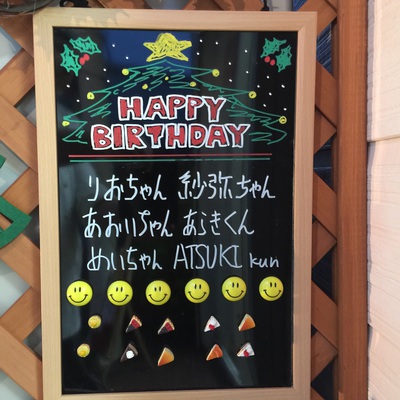 HAPPY
BIRTHDAY
りおちゃん 紗弥ちゃん
あおいちゃん あらきくん
めいちゃん ATSUKI kun